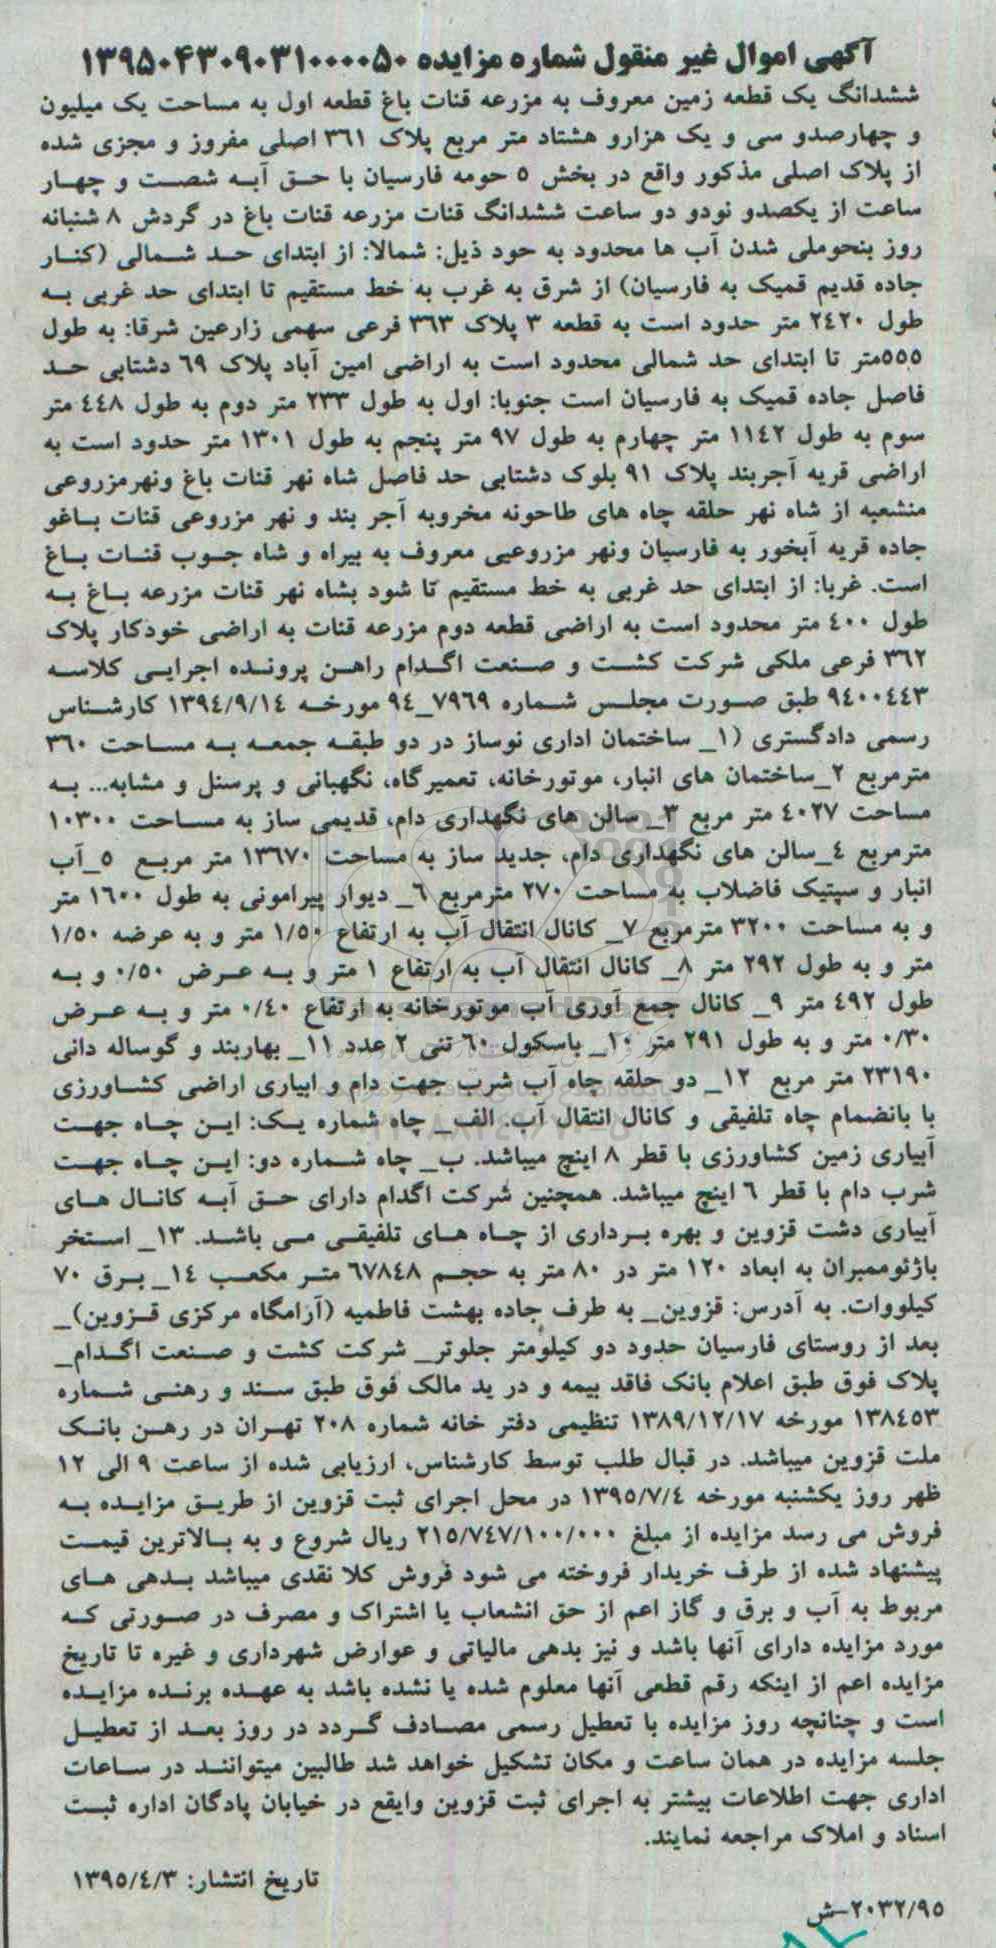 آگهی اموال غیر منقول شماره مزایده ۱۳۹۵۰۴۳۰۹۰۳۱۰۰۰۰۵۰
ششدانگ یک قطعه زمین معروف به مزرعه قنات باغ قطعه اول به مساحت یک میلیون
و چهارصدو سی و یک هزارو هشتاد متر مربع پلاک ۳۶۱ اصلی مفروز و مجزی شده
از پلاک اصلی مذکور واقع در بخش ۵ حومه فارسیان با حق آبه شصت و چهار
ساعت از یکصدو نودو دو ساعت ششدانگ قنات مزرعه قنات باغ در گردش ۸ شنبانه
روز بنحوملی شدن آب ها محدود به حود ذیل: شمالا: از ابتدای حد شمالی (کنار
جاده قدیم قمیک به فارسیان) از شرق به غرب به خط مستقیم تا ابتدای حد غربی به
طول ۲۴۲۰ متر حدود است به قطعه ۳ پلاک ۳۶۳ فرعی سهمی زارعین شرقا: به طول
۵۵۵متر تا ابتدای حد شمالی محدود است به اراضی امین آباد پلاک ۶۹ دشتابی حد
فاصل جاده قمیک به فارسیان است جنوبا: اول به طول ۲۳۳ متر دوم به طول ۴۴۸ متر
سوم به طول ۱۱۴۲ متر چهارم به طول ۹۷ متر پنجم به طول ۱۳۰۱ متر حدود است به
اراضی قریه آجربند پلاک ۹۱ بلوک دشتابی حد فاصل شاه نهر قنات باغ ونهرمزروعی
منشعبه از شاه نهر حلقه چاه های طاحونه مخروبه آجر بند و نهر مزروعی قنات باغو
جاده قریه آبخور به فارسیان ونهر مزروعیی معروف به بیراه و شاه جوب قنات باغ
است. غربا: از ابتدای حد غربی به خط مستقیم تا شود بشاه نهر قنات مزرعه باغ به
طول ۴۰۰ متر محدود است به اراضی قطعه دوم مزرعه قنات به اراضی خودکار پلاک
۳۶۲ فرعی ملکی شرکت کشت و صنعت اگدام راهن پرونده اجرایی کلاسه
۹۴۰۰۴۴۳ طبق صورت مجلس شماره ۷۹۶۹_۹۴ مورخه ۱۳۹۴/۹/۱۴ کارشناس
رسمی دادگستری (۱_ ساختمان اداری نوساز در دو طبقه جمعه به مساحت ۳۶۰
مترمربع ۲_ساختمان های انبار، موتورخانه، تعمیرگاه، نگهبانی و پرسنل و مشابه... به
مساحت ۴۰۲۷ متر مربع ۳_ سالن های نگهداری دام، قدیمی ساز به مساحت ۱۰۳۰۰
مترمربع ۴_سالن های نگهداری دام، جدید ساز به مساحت ۱۳۶۷۰ متر مربع ۵_آب
انبار و سپتیک فاضلاب به مساحت ۲۷۰ مترمربع ۶_ دیوار پیرامونی به طول ۱۶۰۰ متر
و به مساحت ۳۲۰۰ مترمربع ۷_ کانال انتقال آب به ارتفاع ۱/۵۰ متر و به عرضه ۱/۵۰
متر و به طول ۲۹۲ متر ۸_ کانال انتقال آب به ارتفاع ۱ متر و به عرض ۰/۵۰ و به
طول ۴۹۲ متر ۹_ کانال جمع آوری آب موتورخانه به ارتفاع ۰/۴۰ متر و به عرض
۰/۳۰ متر و به طول ۲۹۱ متر ۱۰_ باسکول ۶۰ تنی ۲ عدد ۱۱_ بهاربند و گوساله دانی
۲۳۱۹۰ متر مربع ۱۲_ دو حلقه چاه آب شرب جهت دام و ابیاری اراضی کشاورزی
با بانضمام چاه تلفیقی و کانال انتقال آب. الف_ چاه شماره یک: این چاه جهت
آبیاری زمین کشاورزی با قطر ۸ اینچ میباشد. ب_ چاه شماره دو: این چاه جهت
شرب دام با قطر ۶ اینچ میباشد. همچنین شرکت اگدام دارای حق آبه کانال های
آبیاری دشت قزوین و بهره برداری از چاه های تلفیقی می باشد. ۱۳_ استخر
باژئوممبران به ابعاد ۱۲۰ متر در ۸۰ متر به حجم ۶۷۸۴۸ متر مکعب ۱۴_ برق ۷۰
کیلووات. به آدرس: قزوین_ به طرف جاده بهشت فاطمیه (آرامگاه مرکزی قزوین)_
بعد از روستای فارسیان حدود دو کیلومتر جلوتر_ شرکت کشت و صنعت اگدام_
پلاک فوق طبق اعلام بانک فاقد بیمه و در ید مالک فوق طبق سند و رهنی شماره
۱۳۸۴۵۳ مورخه ۱۳۸۹/۱۲/۱۷ تنظیمی دفتر خانه شماره ۲۰۸ تهران در رهن بانک
ملت قزوین میباشد. در قبال طلب توسط کارشناس، ارزیابی شده از ساعت ۹ الی ۱۲
ظهر روز یکشنبه مورخه ۱۳۹۵/۷/۴ در محل اجرای ثبت قزوین از طریق مزایده به
فروش می رسد مزایده از مبلغ ۲۱۵/۷۴۷/۱۰۰/۰۰۰ ریال شروع و به بالاترین قیمت
پیشنهاد شده از طرف خریدار فروخته می شود فروش کلا نقدی میباشد بدهی های
مربوط به آب و برق و گاز اعم از حق انشعاب یا اشتراک و مصرف در صورتی که
مورد مزایده دارای آنها باشد و نیز بدهی مالیاتی و عوارض شهرداری و غیره تا تاریخ
مزایده اعم از اینکه رقم قطعی آنها معلوم شده یا نشده باشد به عهده برنده مزایده
است و چنانچه روز مزایده با تعطیل رسمی مصادف گردد در روز بعد از تعطیل
جلسه مزایده در همان ساعت و مکان تشکیل خواهد شد طالبین میتوانند در ساعات
اداری جهت اطلاعات بیشتر به اجرای ثبت قزوین وایقع در خیابان پادگان اداره ثبت
اسناد و املاک مراجعه نمایند.
تاریخ انتشار: ۱۳۹۵/۴/۳
۲۰۳۲/۹۵-ش